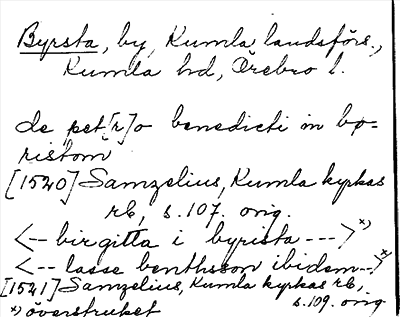 Byrsta, by, Kumla landsförs.,
Kumla hd, Örebro l.
de pet[r]o benedicti in bø-
ristom
[1520] Samzelius, Kumla kyrkas
rb, s.107. orig.
<-- birgitta i byrista --->x)
<-- lasse benthsson ibidem-->x)
[1521] Samzelius, Kumla kyrkas rb,
x) överstruket s.109. orig